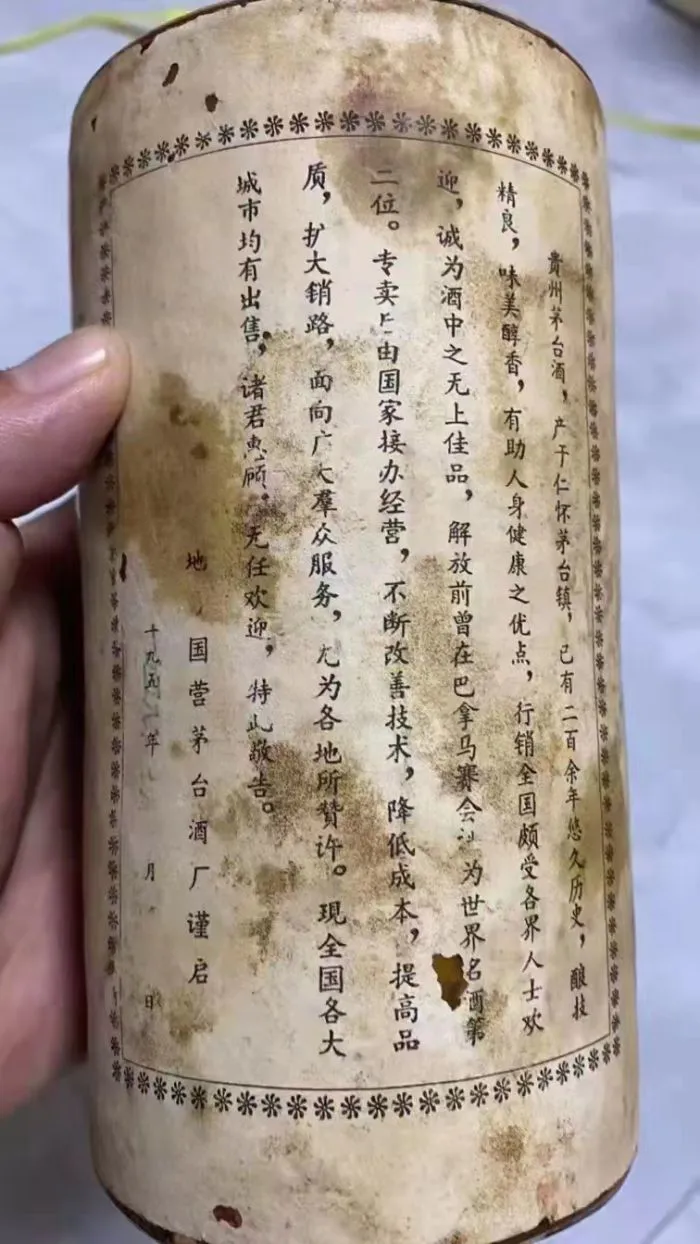 贵州茅台酒，产于仁怀茅台镇，已有二百余年悠久历史，酿技
精良，味美醇香，有助人身健康之优点，行销全国颇受各界人士欢
迎，诚为酒中之无上佳品，解放前曾在巴拿马赛会 为世界名酒第
二位。专卖 由国家接办经营，不断改善技术，降低成本，提高品
质，扩大销路，面向广大群众服务，尤为各地所赞许。现全国各大
城市均有出售，诸君惠顾，无任欢迎，特此敬告。
地 国营茅台酒厂谨启
十九五 年 月 日